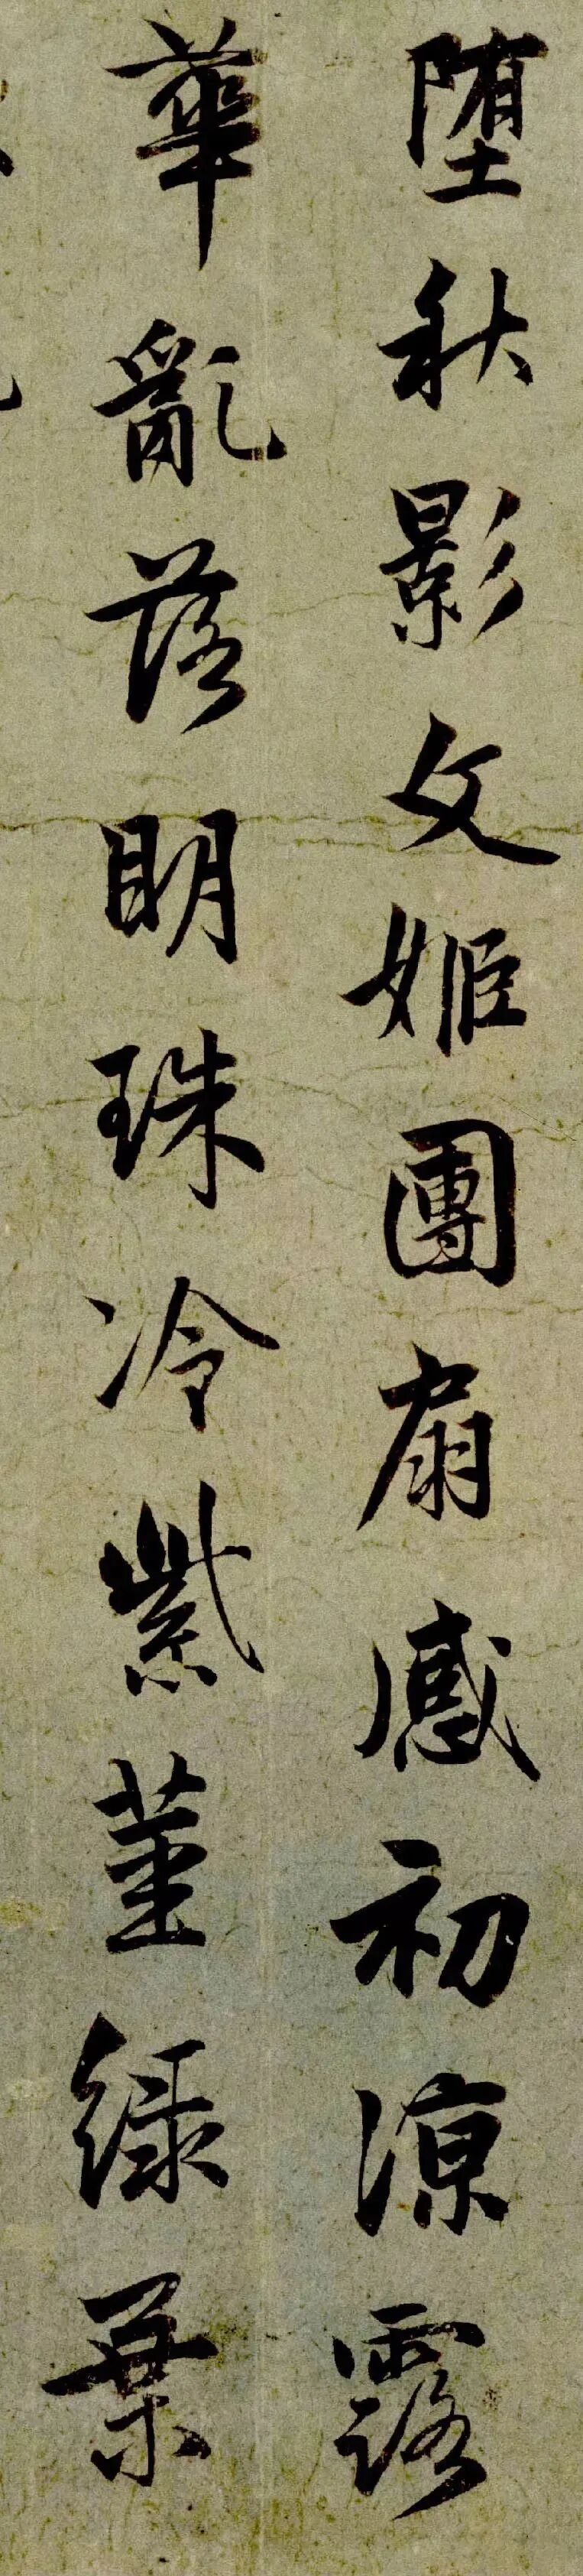 堕秋影文姬團扇感初涼露
華亂落明珠冷紫菫綠葉